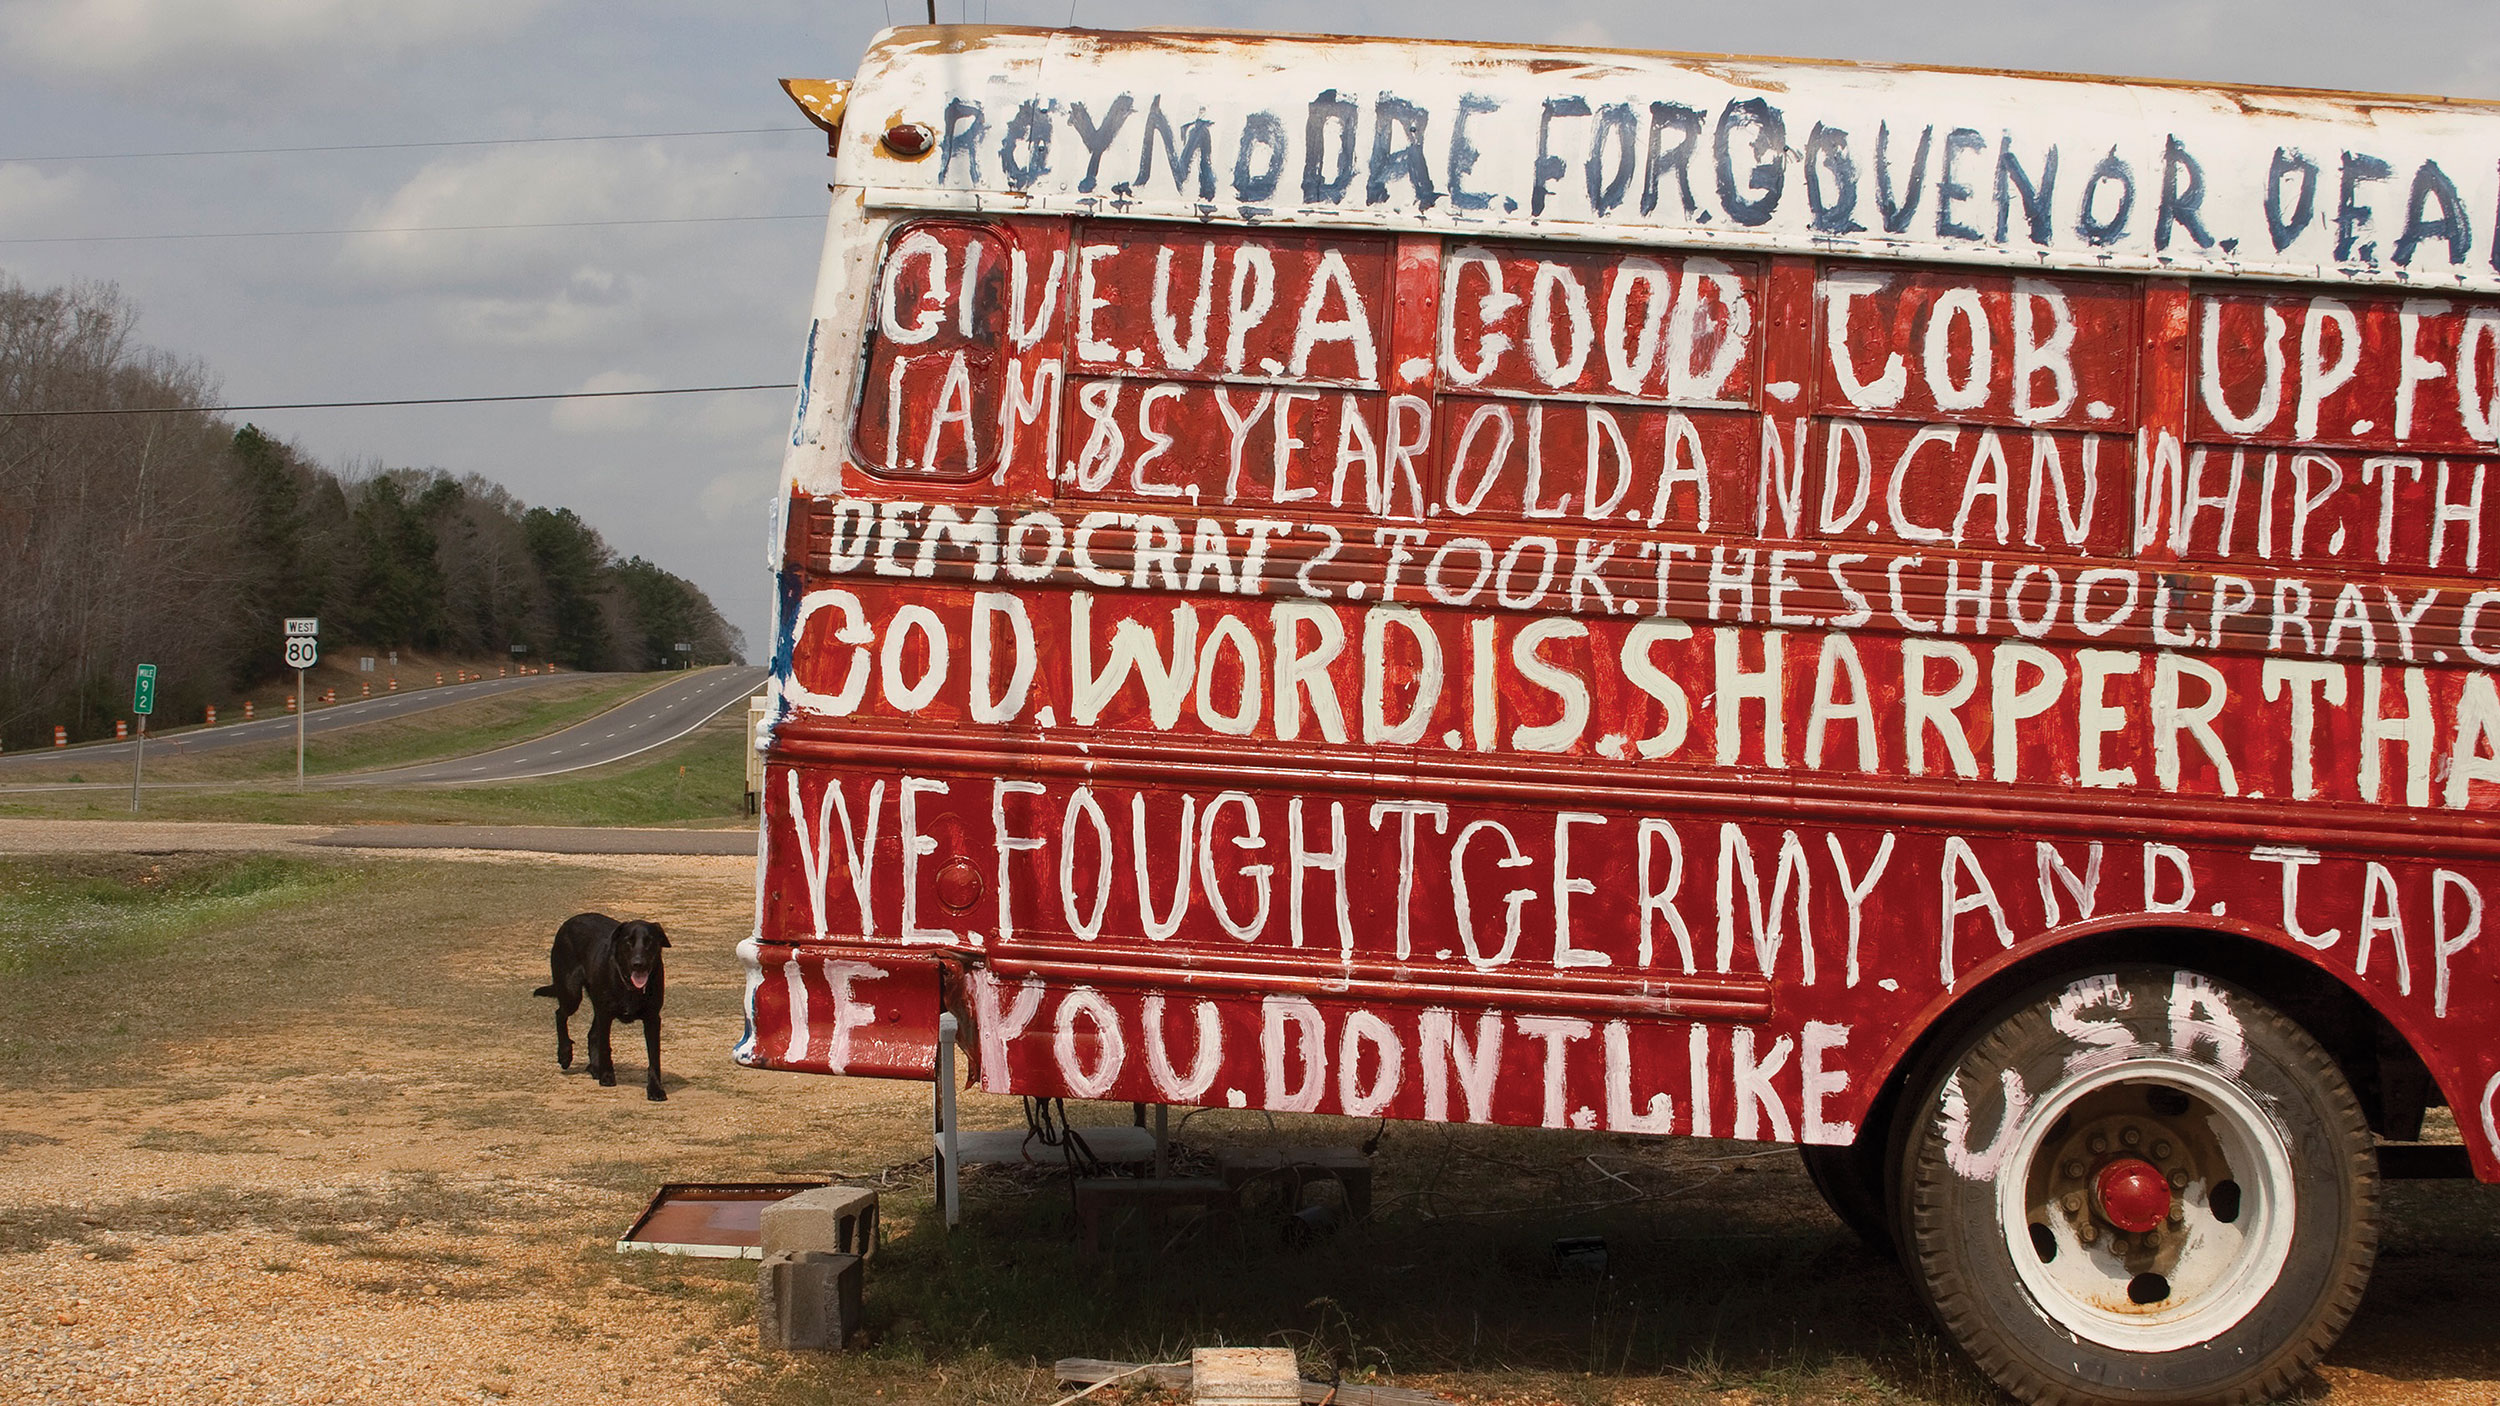 ROY.MOORE.FOR.GOVENOR.OF.A
GIVE.UP.A.GOOD.JOB. UP.FO
I AM.83.YEAR.OLD.AND.CAN WHIP.TH
DEMOCRATS.TOOK.THE.SCHOOL.PRAY.O
GOD.WORD.IS.SHARPER.THA
WE.FOUGHT.GERMY.AND.JAP
IF YOU.DONT.LIKE
USA
WEST
80
MILE
9
2